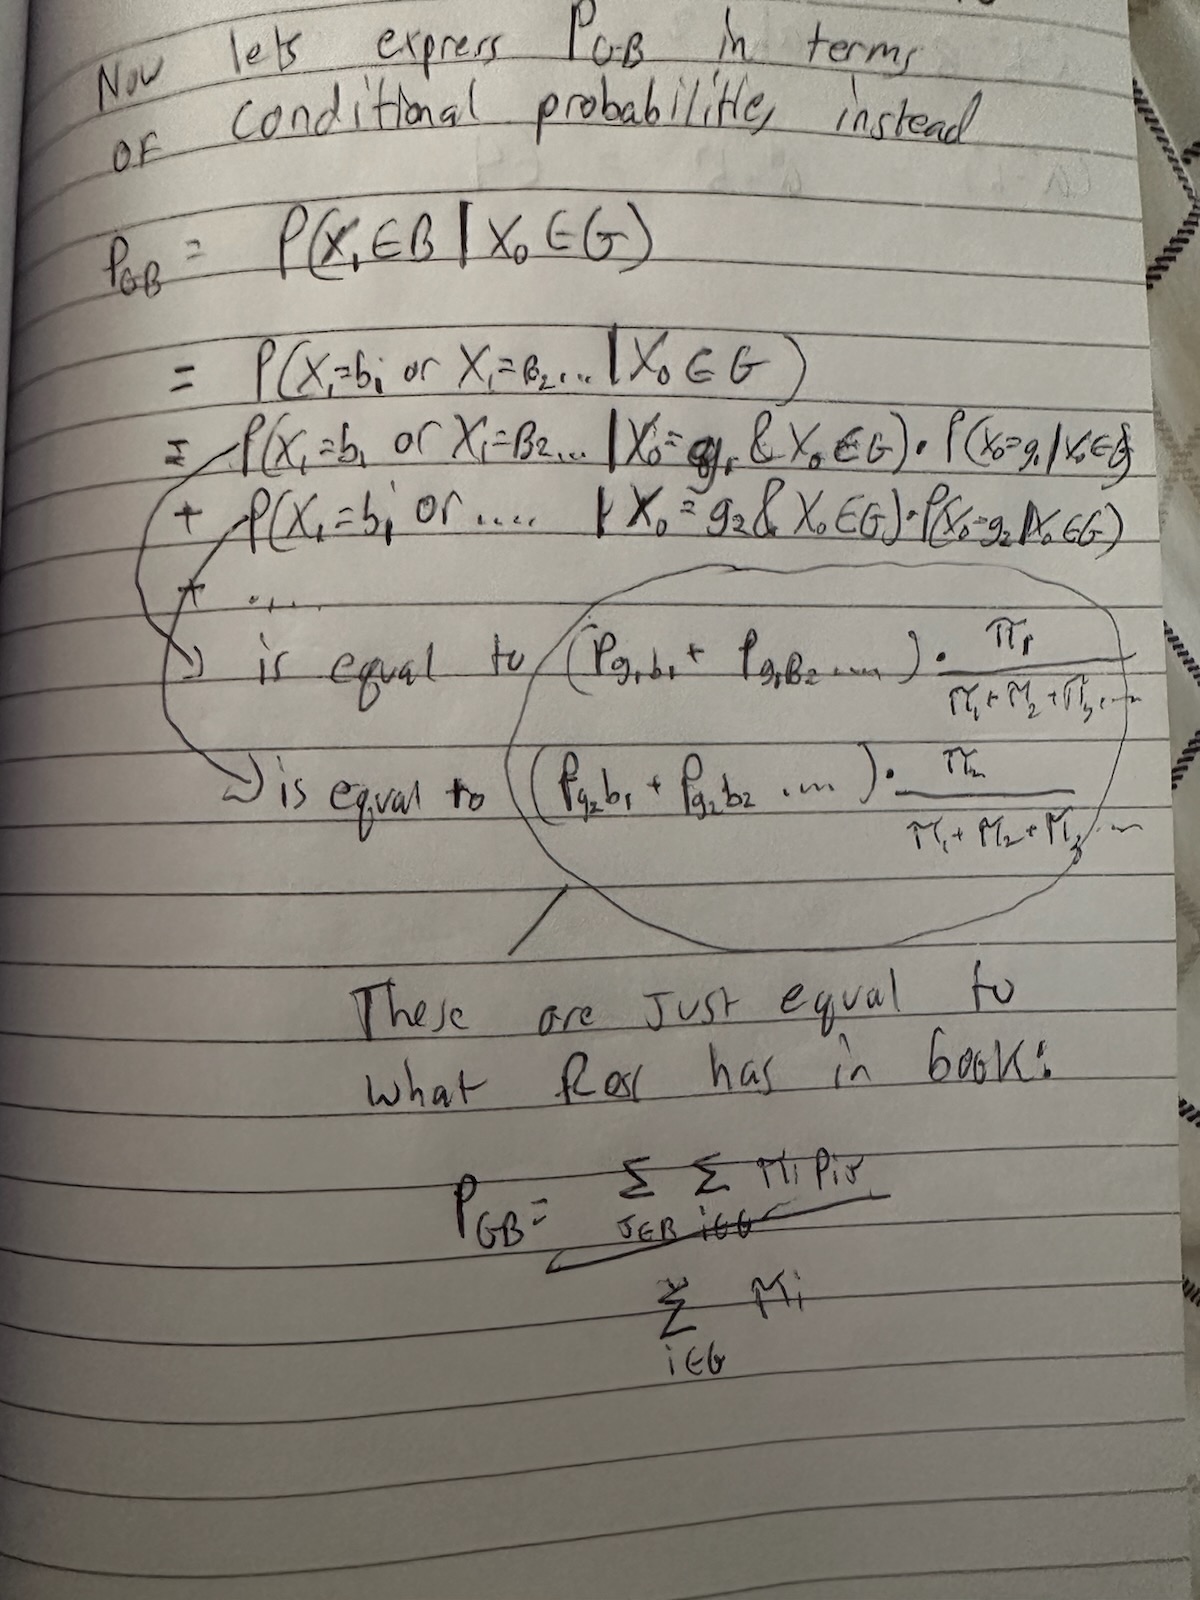 Now lets express P_GB in terms
of conditional probabilities instead
P_GB = P(X₁∈B | X₀∈G)
= P(X₁=b₁ or X₁=B₂... | X₀∈G)
= P(X₁=b₁ or X₁=B₂... | X₀=g₁ & X₀∈G) · P(X₀=g₁|X₀∈G)
+ P(X₁=b₁ or .... | X₀=g₂ & X₀∈G) · P(X₀=g₂|X₀∈G)
+ ....
is equal to (P_g₁b₁ + P_g₁B₂ ....) · π₁ / (π₁+π₂+π₃....)
is equal to (P_g₂b₁ + P_g₂b₂ ....) · π₂ / (π₁+π₂+π₃....)
These are Just equal to
what Ross has in book:
P_GB = Σ_{J∈B} Σ_{i∈G} π_i P_iJ
Σ_{i∈G} π_i